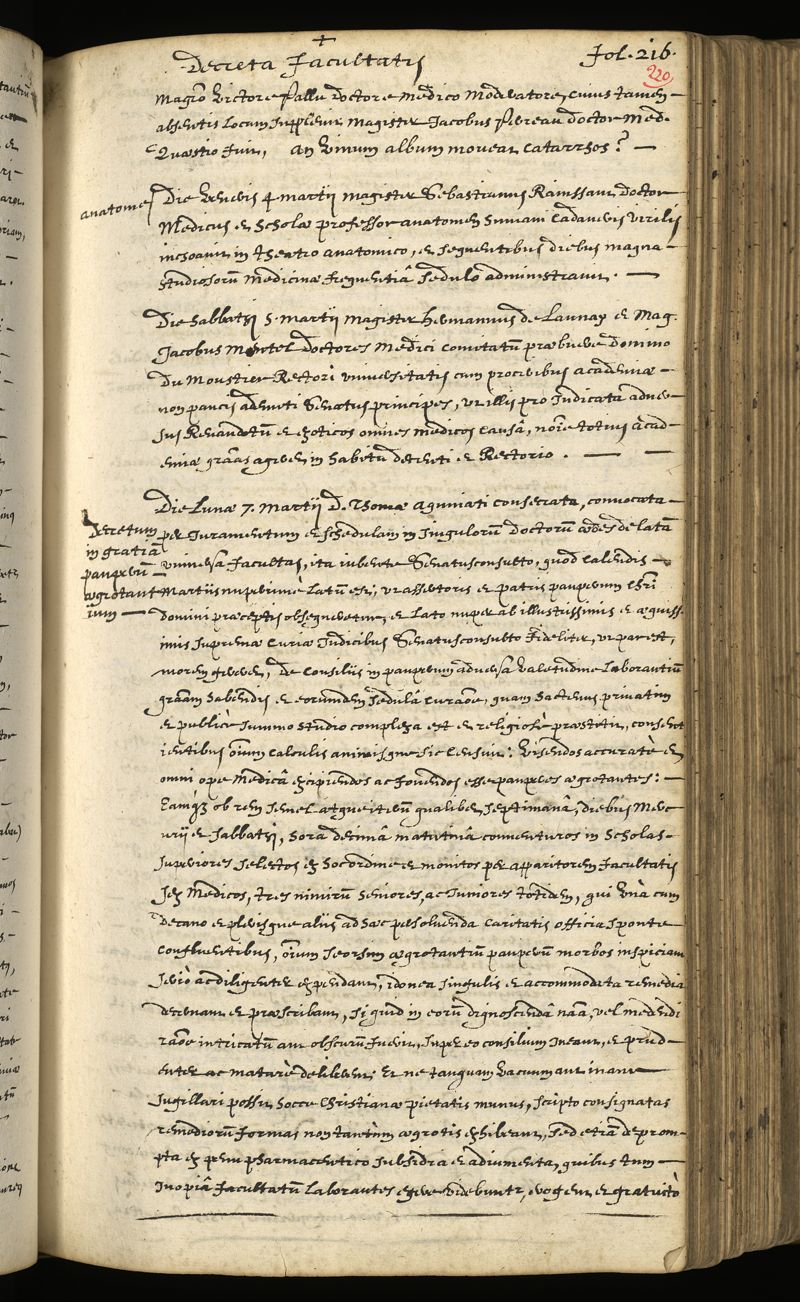 Decreta Facultatis
Fol. 216.
220
Magro Victore Pallu doctore Medico Moderatore, cuius tamen
absentis locum supplevit Magister Jacobus Perreau doctor Med.
Quæstio fuit, an vinum album moveat catarrhos?
anatome
Die Veneris 4 Martij Magister Sebastianus Rainssant doctor
Medicus et Scholæ professor anatomen Suivani cadaveris virilis
inchoavit in theatro anatomico, et sequentibus diebus magna
studiosorũ medicinæ frequentiâ sedulo administravit.
Die Sabbathi 5. Martij Magister Hermannus de Launay et Mag.
Jacobus Mentel doctores Medici comitatũ præbuere domino
Du Moustier Rectori universitatis cum proceribus academiæ
non paucis adeunti Senatus principes, ut illis pro Indicata adver
sus Renaudotũ et exoticos omnes medicos causâ, noĩe totius acad
emiæ gratias ageret in habitu decenti et Rectorio.
Die Lunæ 7. Martij D. Thomæ Aquinati consecrata, convocata
Decretum
in gratiã
pauperũ
ægrotant
ium
per Juramentum et schedulam in singulorũ doctorũ ædes delatã
universa facultas, ita iubente Senatusconsulto, quod calendis
Martiis nuperrimè latũ est; ut assertoris et patris pauperum Chri
domini præceptis obsequeretur, et lato nuper ab illustrissimis et æquiss
imis supremæ Curiæ Iudicibus Senatusconsulto fideliter, ut par est,
morem gereret, de consiliis in pauperum adversa valetudine laborantiũ
gratiam habendis et eorumdem sedulâ curatione, quam hactenus privatim
et publicè summo studio complexa est et religiosè præstitit, consent
ientibus oĩum calculis animisque sic censuit: Visendos accuratè et
omni ope medicâ excipiendos ac fovendos esse pauperes ægrotantes:
eamq; ob rem semel atque iterũ qualibet septimanâ, diebus Merc
urii et Sabbathi, hora decimâ matutinâ conventuros in scholas
superiores selectos ex ordine et monitos per apparitorem facultatis
sex Medicos, tres nimirũ seniores, ac Juniores totidem, qui unà cum
Decano et plerisque aliis ad hæc persolvenda caritatis officia sponte
confluentibus, oĩum seorsim ægrotantiũ pauperũ morbos inspiciant
seriò ac diligenter expendant, idonea singulis et accommodata remedia
decernant et præscribant, si quid in eorũ dignoscendâ nata, vel medendi
ratione intricatũ aut obscurũ fuerit, super eo consilium ineant, et prud
enter ac maturè deliberent: Et ne tanquam vacuum aut inane
sugillari possit hocce Christianæ pietatis munus, scripto consignatas
remediorũ formas non tantùm ægrotis exhibeant, sed etiã deprom
pta ex penu pharmaceutico subsidia et adiumenta, quibus tum
Inopiâ facultatũ laborantes egere videbuntr, erogent et gratuitò